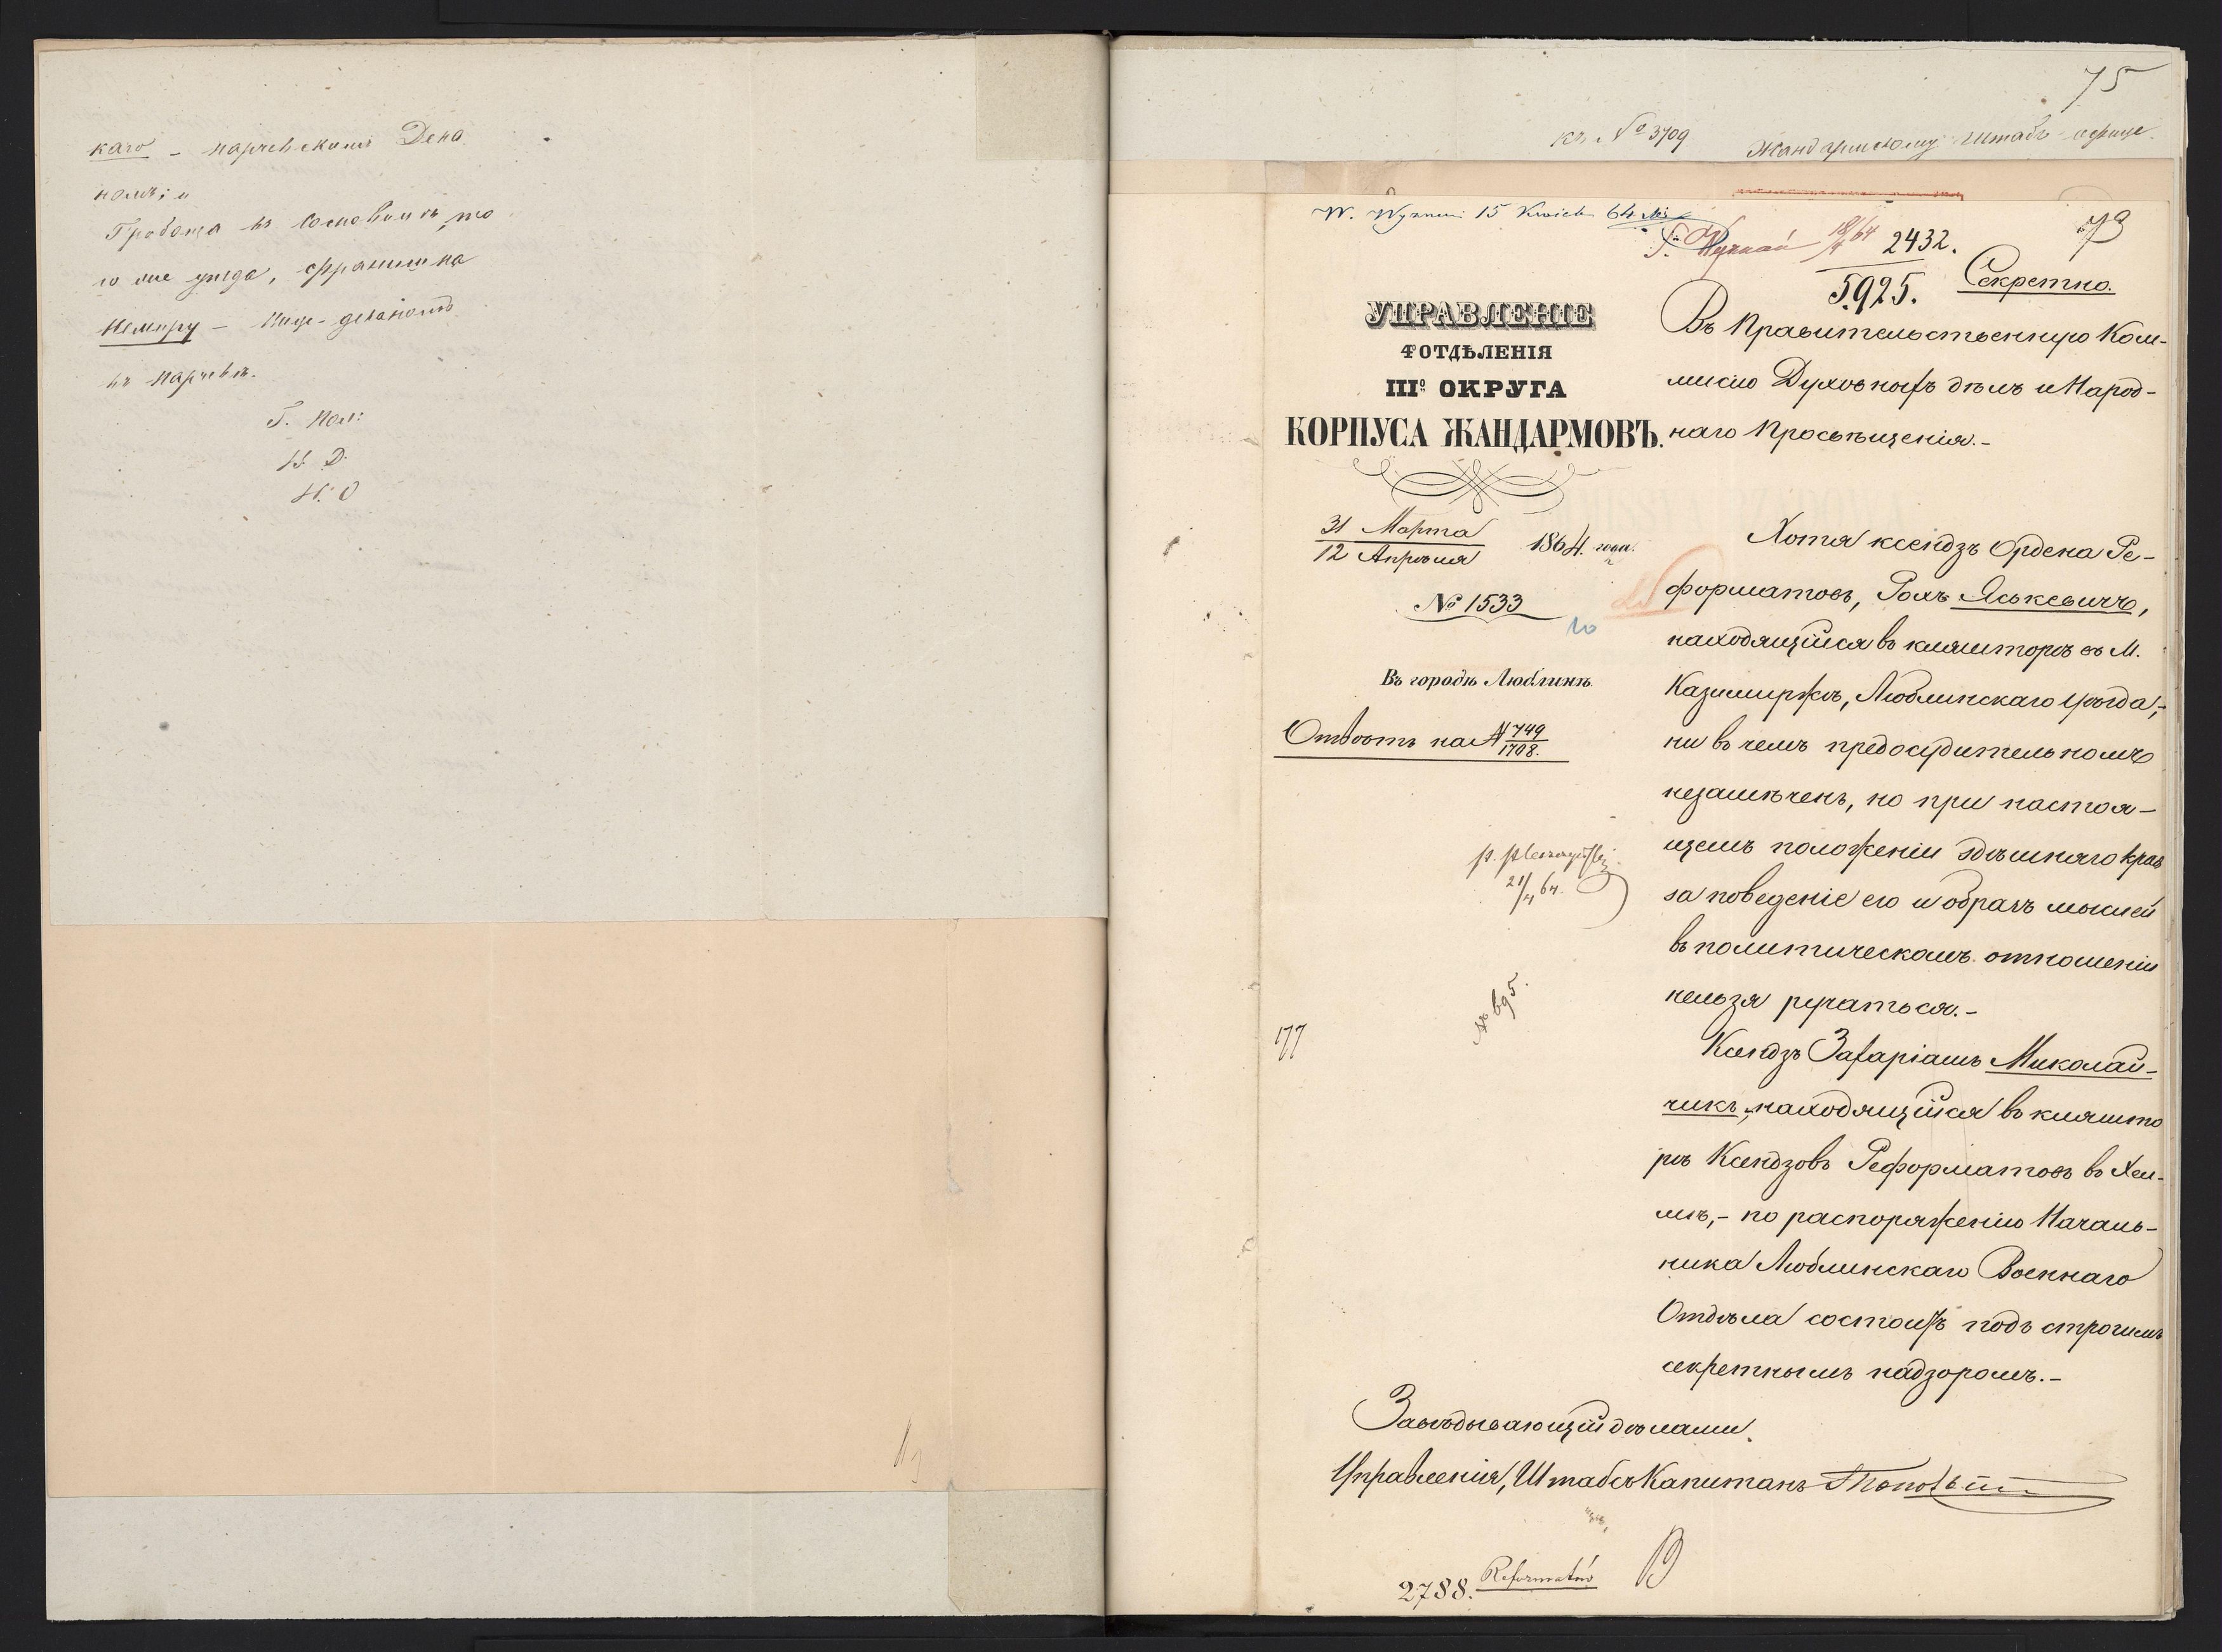 каго - парчевскимъ Дека
номъ; и
Пробоща въ Сосновицѣ, то
го же уѣзда, Францишка
Немиру - Вице-деканомъ
въ Парчевѣ.
Г. Пол:
В. Д.
Н. О
75
къ № 3709
Жандармскому Штабъ-офице
W. Wyznań 15 Kwiet 64
73
18/4 64
2432.
5925.
Секретно.
УПРАВЛЕНІЕ
4го ОТДѢЛЕНІЯ
IIIго ОКРУГА
КОРПУСА ЖАНДАРМОВЪ.
31 Марта
12 Апрѣля
1864 года.
№ 1533
Въ городѣ Люблинѣ.
Отвѣтъ на № 749
1708.
21/4 64.
177
Въ Правительственную Ком-
мисію Духовныхъ дѣлъ и Народ-
наго Просвѣщенія.-
Хотя ксендзъ Ордена Ре-
форматовъ, Рохъ Яськевичъ,
находящійся въ кляшторѣ въ М.
Казимиржѣ, Люблинскаго уѣзда,-
ни въ чемъ предосудительномъ
незамѣченъ, но при настоя-
щемъ положеніи здѣшняго края
за поведеніе его и образъ мыслей
въ политическомъ отношеніи
нельзя ручаться.-
Ксендзъ Захаріашъ Миколай-
чикъ, находящійся въ кляшто
рѣ Ксендзовъ Реформатовъ въ Хел-
мѣ,- по распоряженію Началь-
ника Люблинскаго Военнаго
Отдѣла состоитъ подъ строгимъ
секретнымъ надзоромъ.-
Завѣдывающій дѣлами
Управленія, Штабсъ Капитанъ
2788.
Reformatów